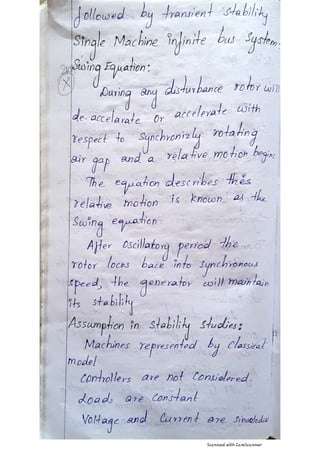 followed by transient stability
Single Machine infinite bus system.
Swing Equation:
During any disturbance rotor will
de-accelarate or accelerate with
respect to synchronizly rotating
air gap and a relative motion begins
The equation describes this
relative motion is known as the
Swing equation.
After oscillatory period the
rotor locks back into synchronous
speed, the generator will maintain
its stability
Assumption in stability studies:
Machines represented by classical
model
controllers are not considered.
Loads are constant
Voltage and Current are
Scanned with CamScanner